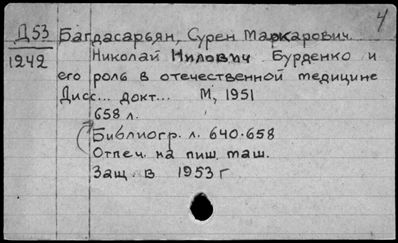 4
Д53 Багдасарьян, Сурен Маркарович.
1242 Николай Нилович Бурденко и
его роль в отечественной медицине
Дисс... докт... М, 1951
658 л.
Библиогр. л. 640-658
Отпеч. на пиш. маш.
Защ. в 1953 г